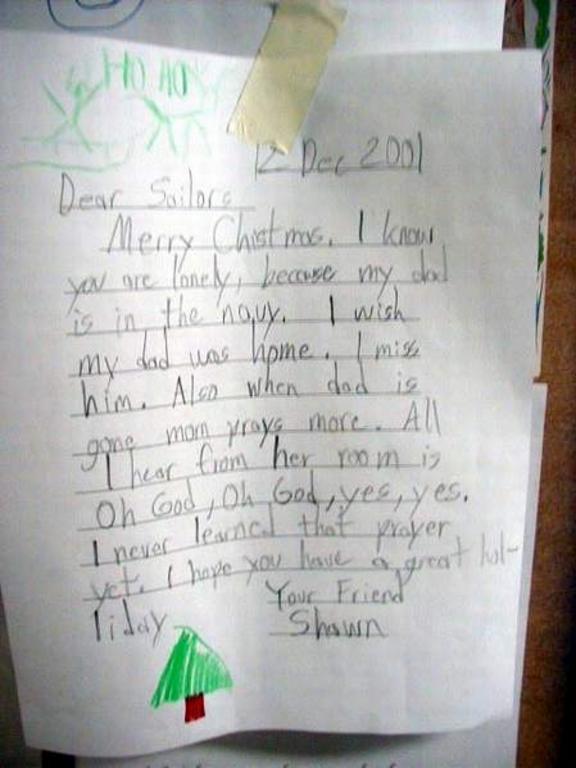 HO HO
12 Dec 2001
Dear Sailors
Merry Chistmas. I know
you are lonely, because my dad
is in the navy. I wish
my dad was home. I miss
him. Also when dad is
gone mom prays more. All
I hear from her room is
Oh God, Oh God, yes, yes.
I never learned that prayer
yet. I hope you have a great hol-
liday
Your Friend
Shawn